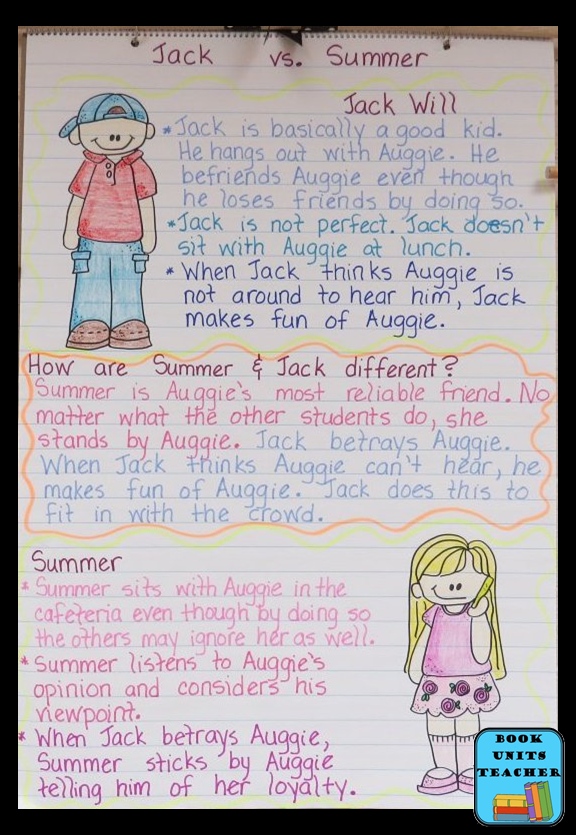 Jack vs. Summer
Jack Will
* Jack is basically a good kid.
He hangs out with Auggie. He
befriends Auggie even though
he loses friends by doing so.
* Jack is not perfect. Jack doesn't
sit with Auggie at lunch.
* When Jack thinks Auggie is
not around to hear him, Jack
makes fun of Auggie.
How are Summer & Jack different?
Summer is Auggie's most reliable friend. No
matter what the other students do, she
stands by Auggie. Jack betrays Auggie.
When Jack thinks Auggie can't hear, he
makes fun of Auggie. Jack does this to
fit in with the crowd.
Summer
* Summer sits with Auggie in the
cafeteria even though by doing so
the others may ignore her as well.
* Summer listens to Auggie's
opinion and considers his
viewpoint.
* When Jack betrays Auggie,
Summer sticks by Auggie
telling him of her loyalty.
BOOK
UNITS
TEACHER